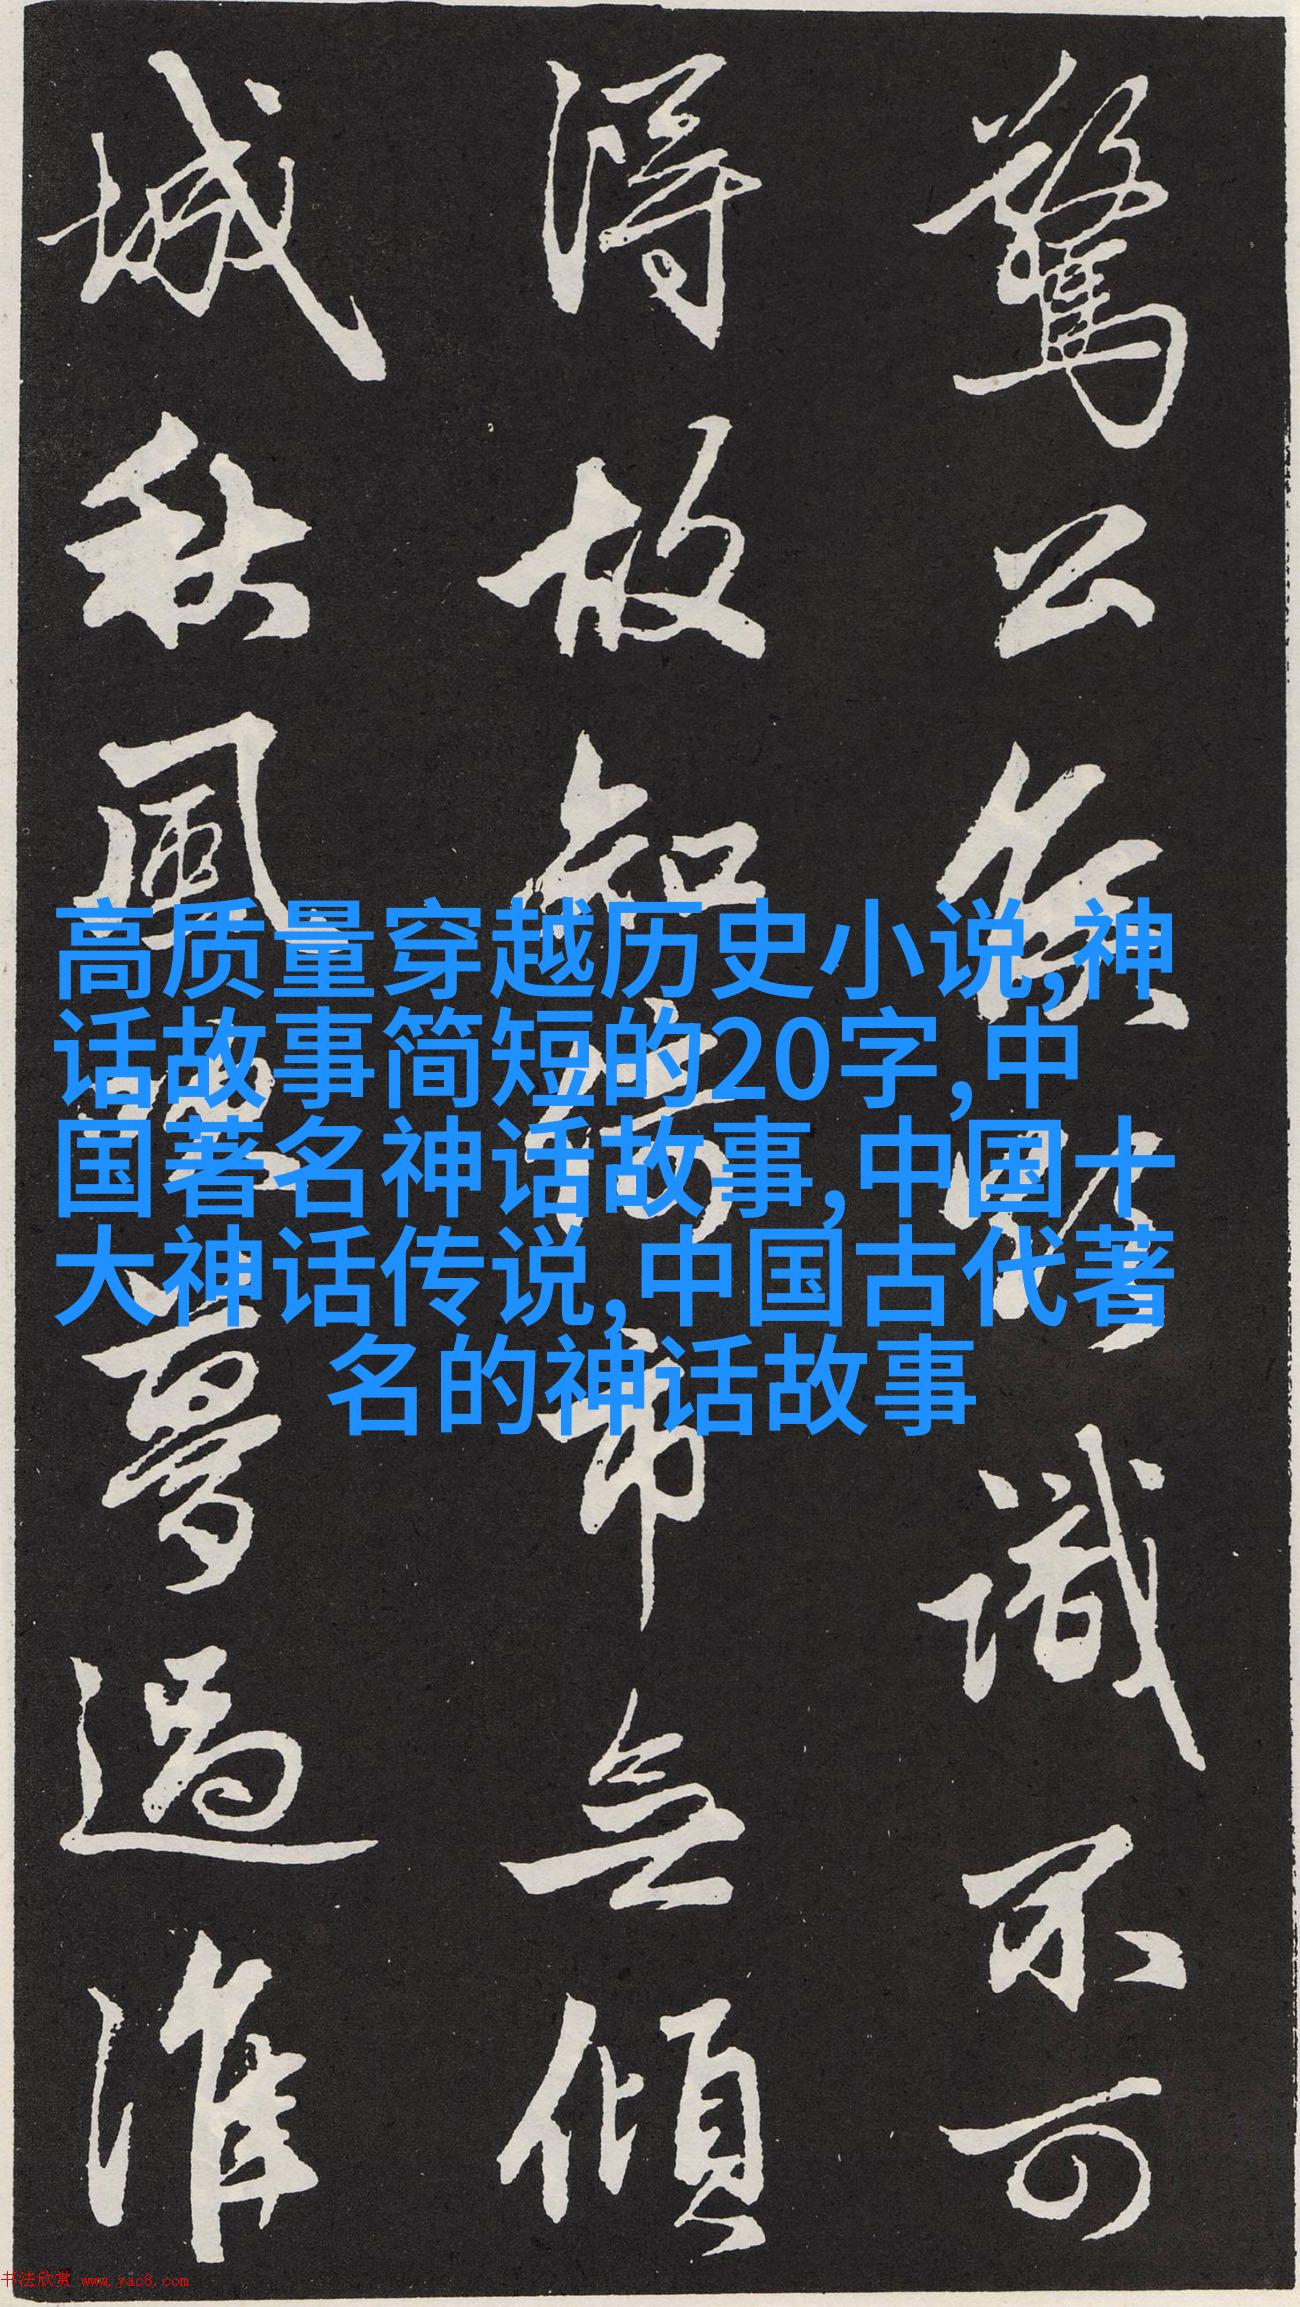 高质量穿越历史小说,神
话故事简短的20字,中
国著名神话故事,中国十
大神话传说,中国古代著
名的神话故事
驚公識不可
得故知市無傾
城秋風夢過淮
书法欣赏 www.yac8.com